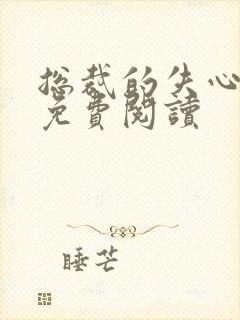 总裁的失心
免費閱讀
睡芒